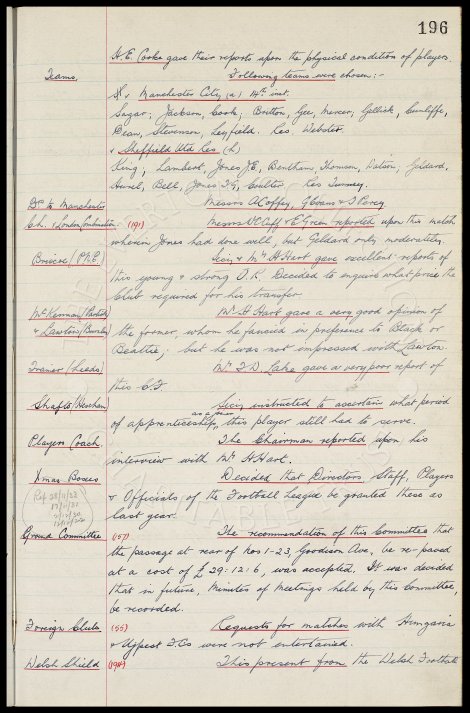 196
H.E. Cooke gave their reports upon the physical condition of players.
Teams. Following teams were chosen:-
v. Manchester City (a) 14th inst.
Sagar; Jackson, Cook; Britton, Gee, Mercer, Gillick, Cunliffe,
Dean, Stevenson, Leyfield. Res. Webster
v Sheffield Utd Res (h)
King; Lambert, Jones J.E, Bentham, Thomson, Watson, Geldard,
Hurel, Bell, Jones T.G, Coulter, Res Turney.
Do to Manchester Messrs A Coffey, G Evans & T Percy
Ch. & London Combination (191) Messrs & E Green reported upon this match
wherein Jones had done well, but Geldard only moderately.
Briscoe (P.N.E.) Secy & Mr H Hart gave excellent reports of
this young & strong O.R. Decided to enquire what price the
Club required for his transfer.
Mr H Hart gave a very good opinion of
& Lawton (Burnley) the former, whom he fancied in preference to Black or
Beattie; but he was not impressed with Lawton.
(Leeds) Mr F.D. Lake gave a very poor report of
this C.F.
Shafto (Hexham) Secy instructed to ascertain what period
of apprenticeship, as a joiner this player still had to serve.
Players Coach The Chairman reported upon his
interview with Mr H Hart.
Xmas Boxes Decided that Directors, Staff, Players
& Officials of the Football League be granted these as
last year.
Ground Committee (157) The recommendation of this Committee that
the passage at rear of Nos 1-23, Goodison Ave, be re-paved
at a cost of £29:12:6, was accepted. It was decided
that in future, Minutes of Meetings held by this Committee,
be recorded.
Foreign Clubs (55) Requests for matches with Hungaria
& Ujpest F.Cs were not entertained.
Welsh Shield (194) This present from the Welsh Football